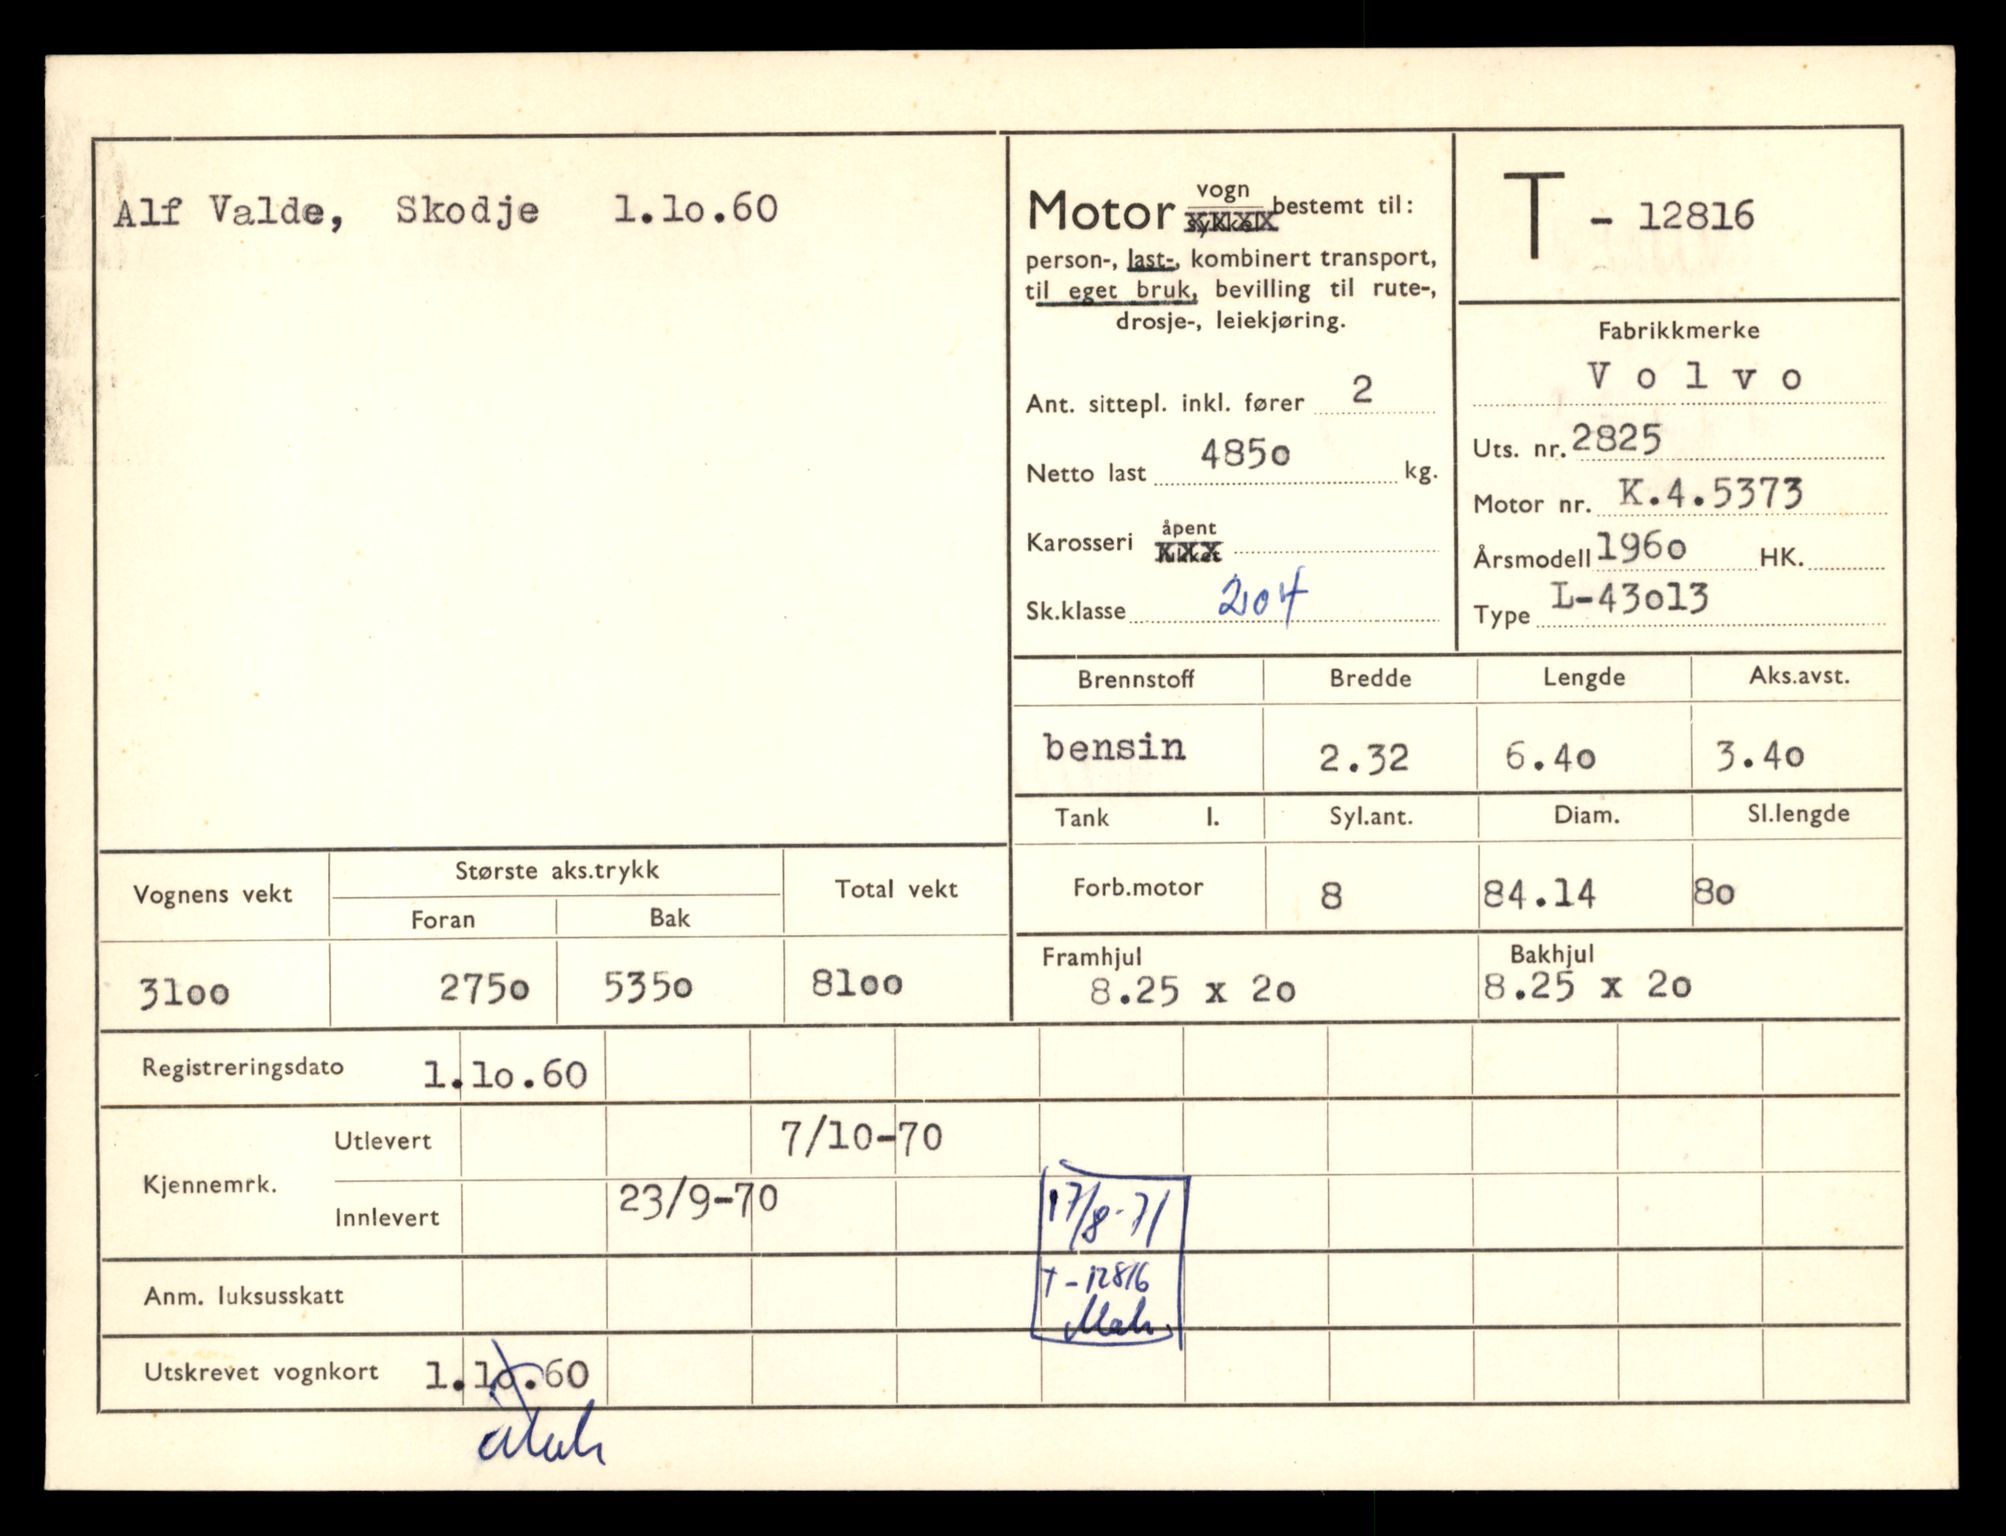 Alf Valde, Skodje 1.10.60
Motor vogn bestemt til:
person-, last-, kombinert transport,
til eget bruk, bevilling til rute-,
drosje-, leiekjøring.
Ant. sittepl. inkl. fører 2
Netto last 4850 kg.
Karosseri åpent lukket
Sk.klasse 204
T - 12816
Fabrikkmerke
Volvo
Uts. nr. 2825
Motor nr. K.4.5373
Årsmodell 1960 HK.
Type L-43013
Brennstoff Bredde Lengde Aks.avst.
bensin 2.32 6.40 3.40
Tank l. Syl.ant. Diam. Sl.lengde
Forb.motor 8 84.14 80
Framhjul Bakhjul
8.25 x 20 8.25 x 20
Vognens vekt Største aks.trykk Total vekt
Foran Bak
3100 2750 5350 8100
Registreringsdato 1.10.60
Kjennemrk.
Utlevert 7/10-70
Innlevert 23/9-70 17/8-71
T-12816
Anm. luksusskatt
Utskrevet vognkort 1.10.60